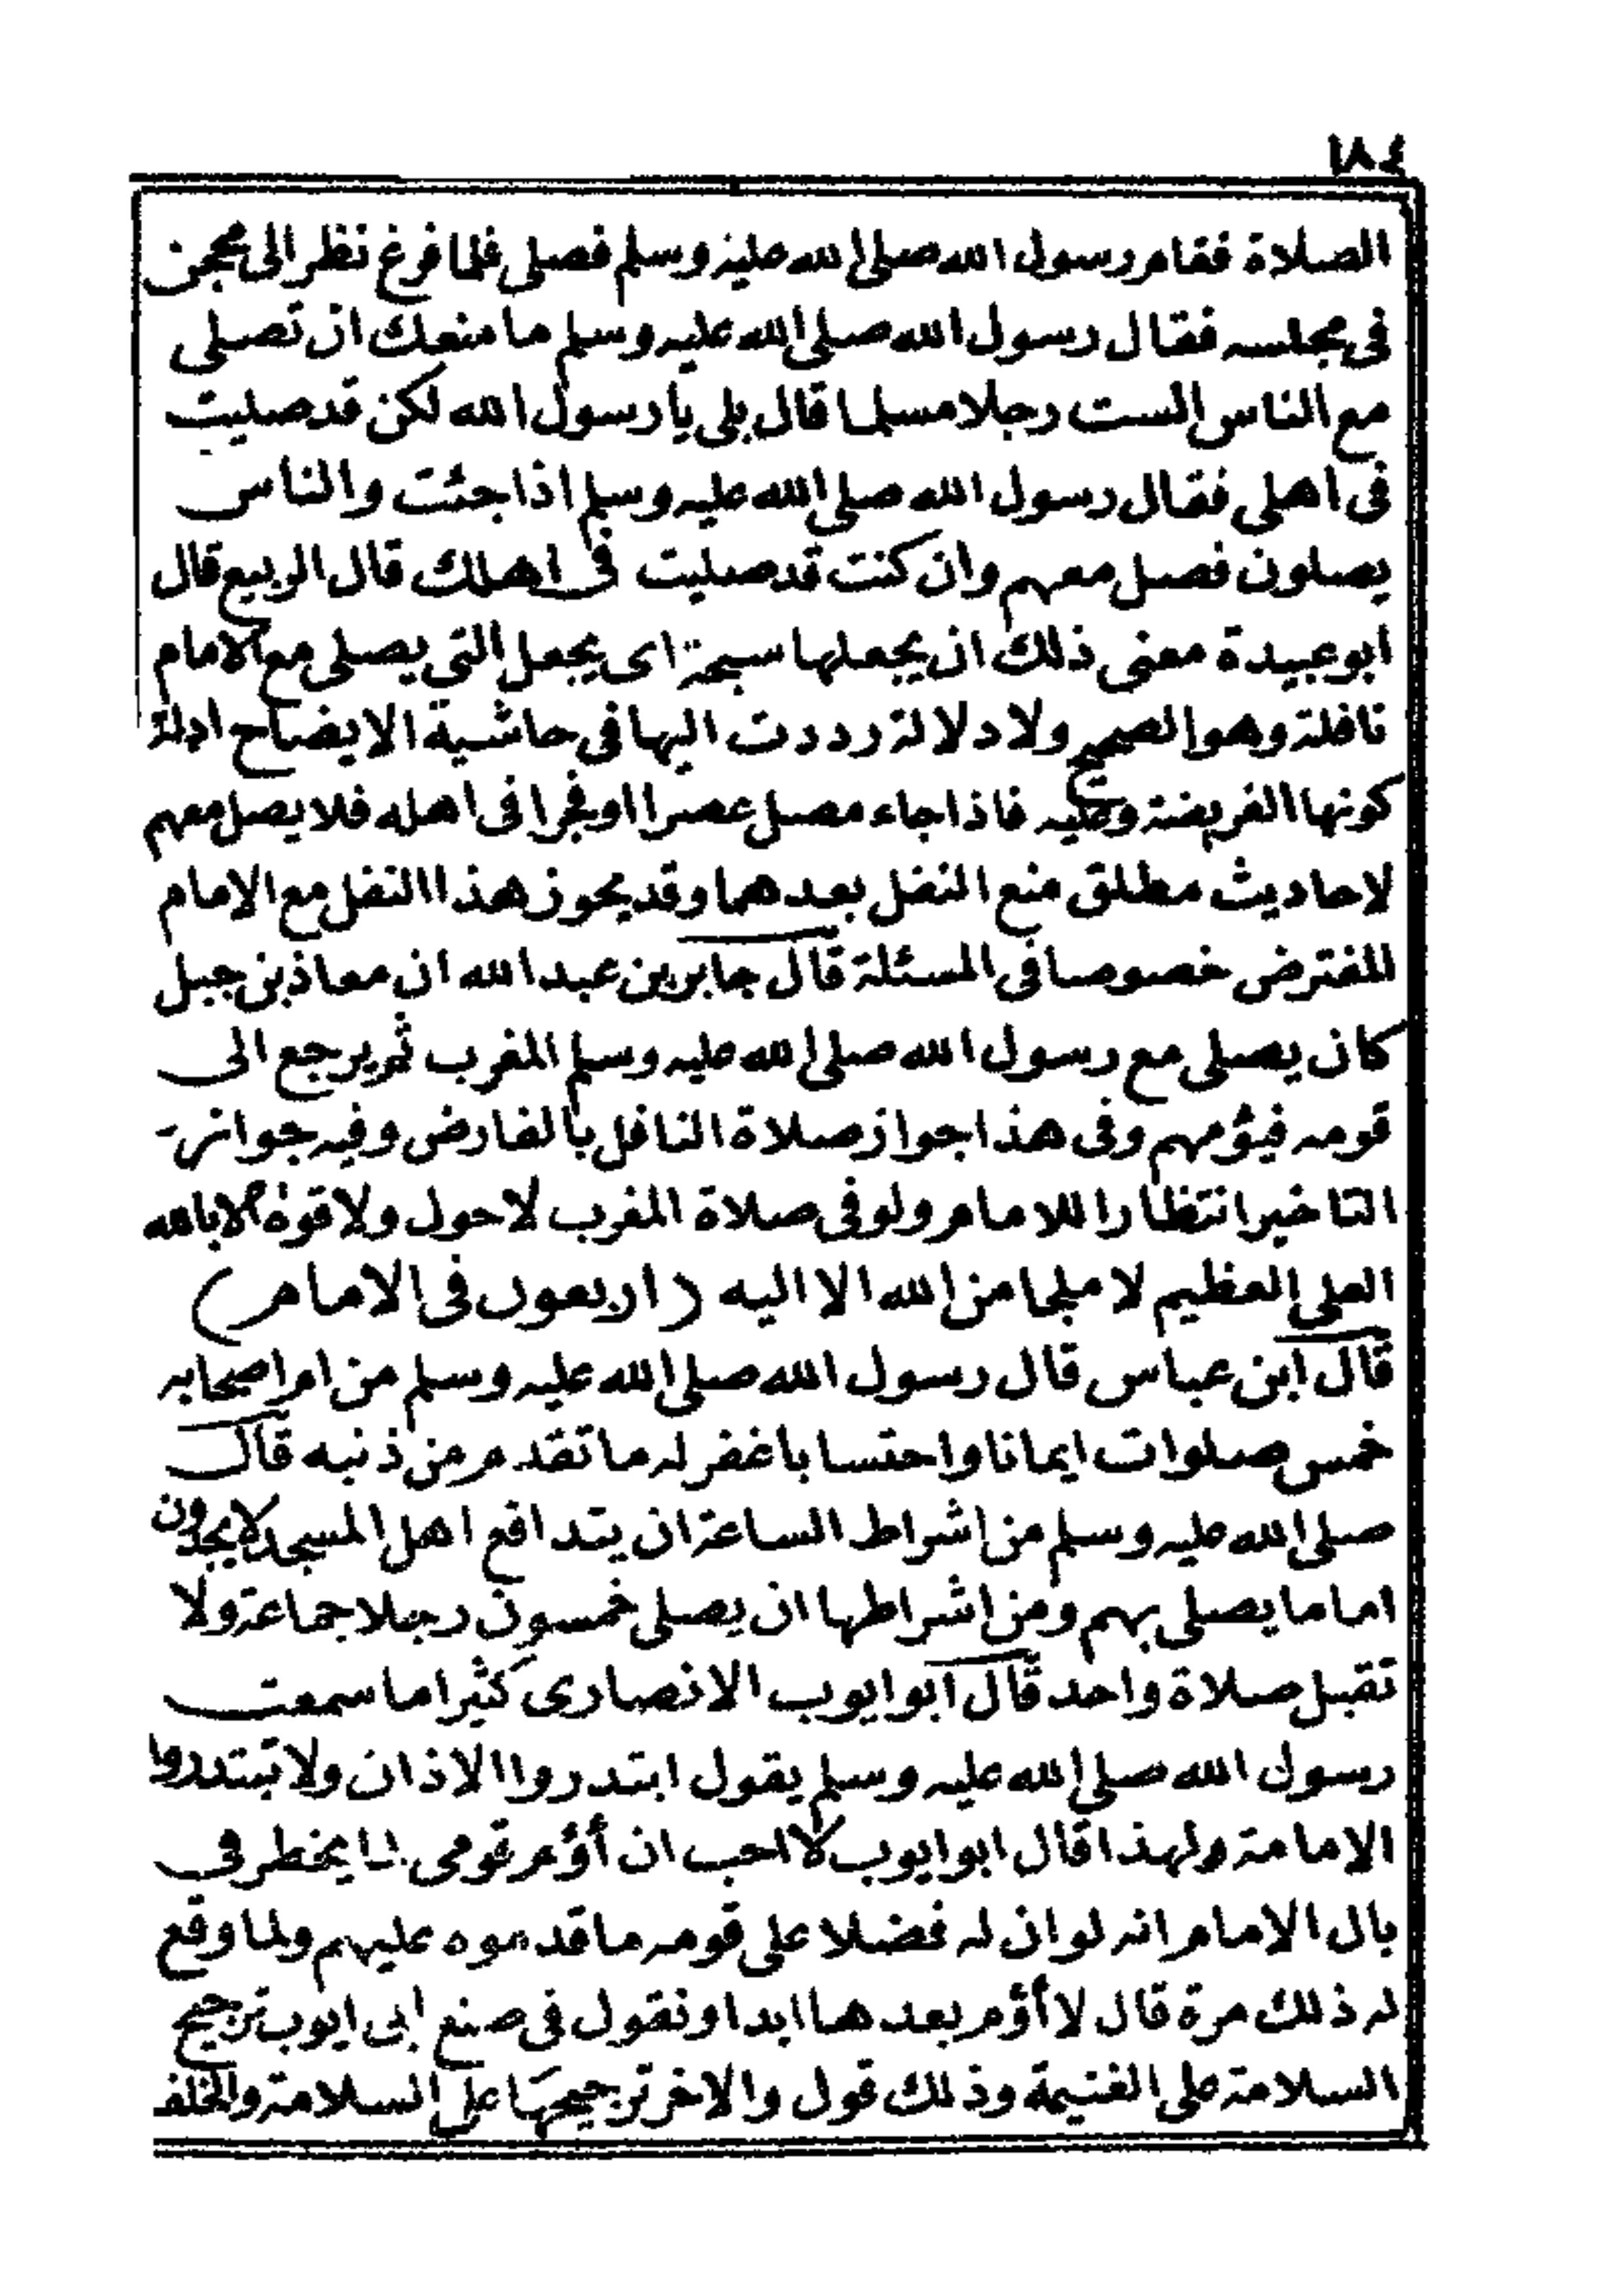 ١٨٤
الصلاة فقام رسول الله صلى الله عليه وسلم فصلى فلما فرغ نظر الى محجن
فى مجلسه فقال رسول الله صلى الله عليه وسلم ما منعك ان تصلى
مع الناس الست رجلا مسلما قال بلى يا رسول الله لكن قد صليت
فى اهلى فقال رسول الله صلى الله عليه وسلم اذا جئت والناس
يصلون فصل معهم وان كنت قد صليت فى اهلك قال الربيع قال
ابو عبيدة معنى ذلك ان يجعلها سبحة اى يجعل التى يصلى مع الامام
نافلة وهو الصحيح ولا دلالة رددت اليها فى حاشية الايضاح ادلة
كونها الفريضة وعليه فاذا جاء مصل عصرا او فجرا فى اهله فلا يصل معهم
لاحاديث مطلق منع النفل بعدهما وقد يجوز هذا النفل مع الامام
المفترض خصوصا فى المسئلة قال جابر بن عبد الله ان معاذ بن جبل
كان يصلى مع رسول الله صلى الله عليه وسلم المغرب ثم يرجع الى
قومه فيؤمهم وفى هذا جواز صلاة النافل بالفارض وفيه جواز
التاخير انتظارا للامام ولو فى صلاة المغرب لا حول ولا قوة الا بالله
العلى العظيم لا ملجا من الله الا اليه (اربعون فى الامام)
قال ابن عباس قال رسول الله صلى الله عليه وسلم من ام اصحابه
خمس صلوات ايمانا واحتسابا غفر له ما تقدم من ذنبه قال
صلى الله عليه وسلم من اشراط الساعة ان يتدافع اهل المسجد لا يجدون
اماما يصلى بهم ومن اشراطها ان يصلى خمسون رجلا جماعة ولا
تقبل صلاة واحد قال ابو ايوب الانصارى كثيرا ما سمعت
رسول الله صلى الله عليه وسلم يقول ابتدروا الاذان ولا تبتدروا
الامامة ولهذا قال ابو ايوب لا احب ان أؤم قومى لما يخطر فى
بال الامام انه لو ان له فضلا على قومه ما قدموه عليهم ولما وقع
له ذلك مرة قال لا أؤم بعدها ابدا ونقول فى صنع ابى ايوب ترجيح
السلامة على الغنيمة وذلك قول والاخر ترجيحها على السلامة والخلف